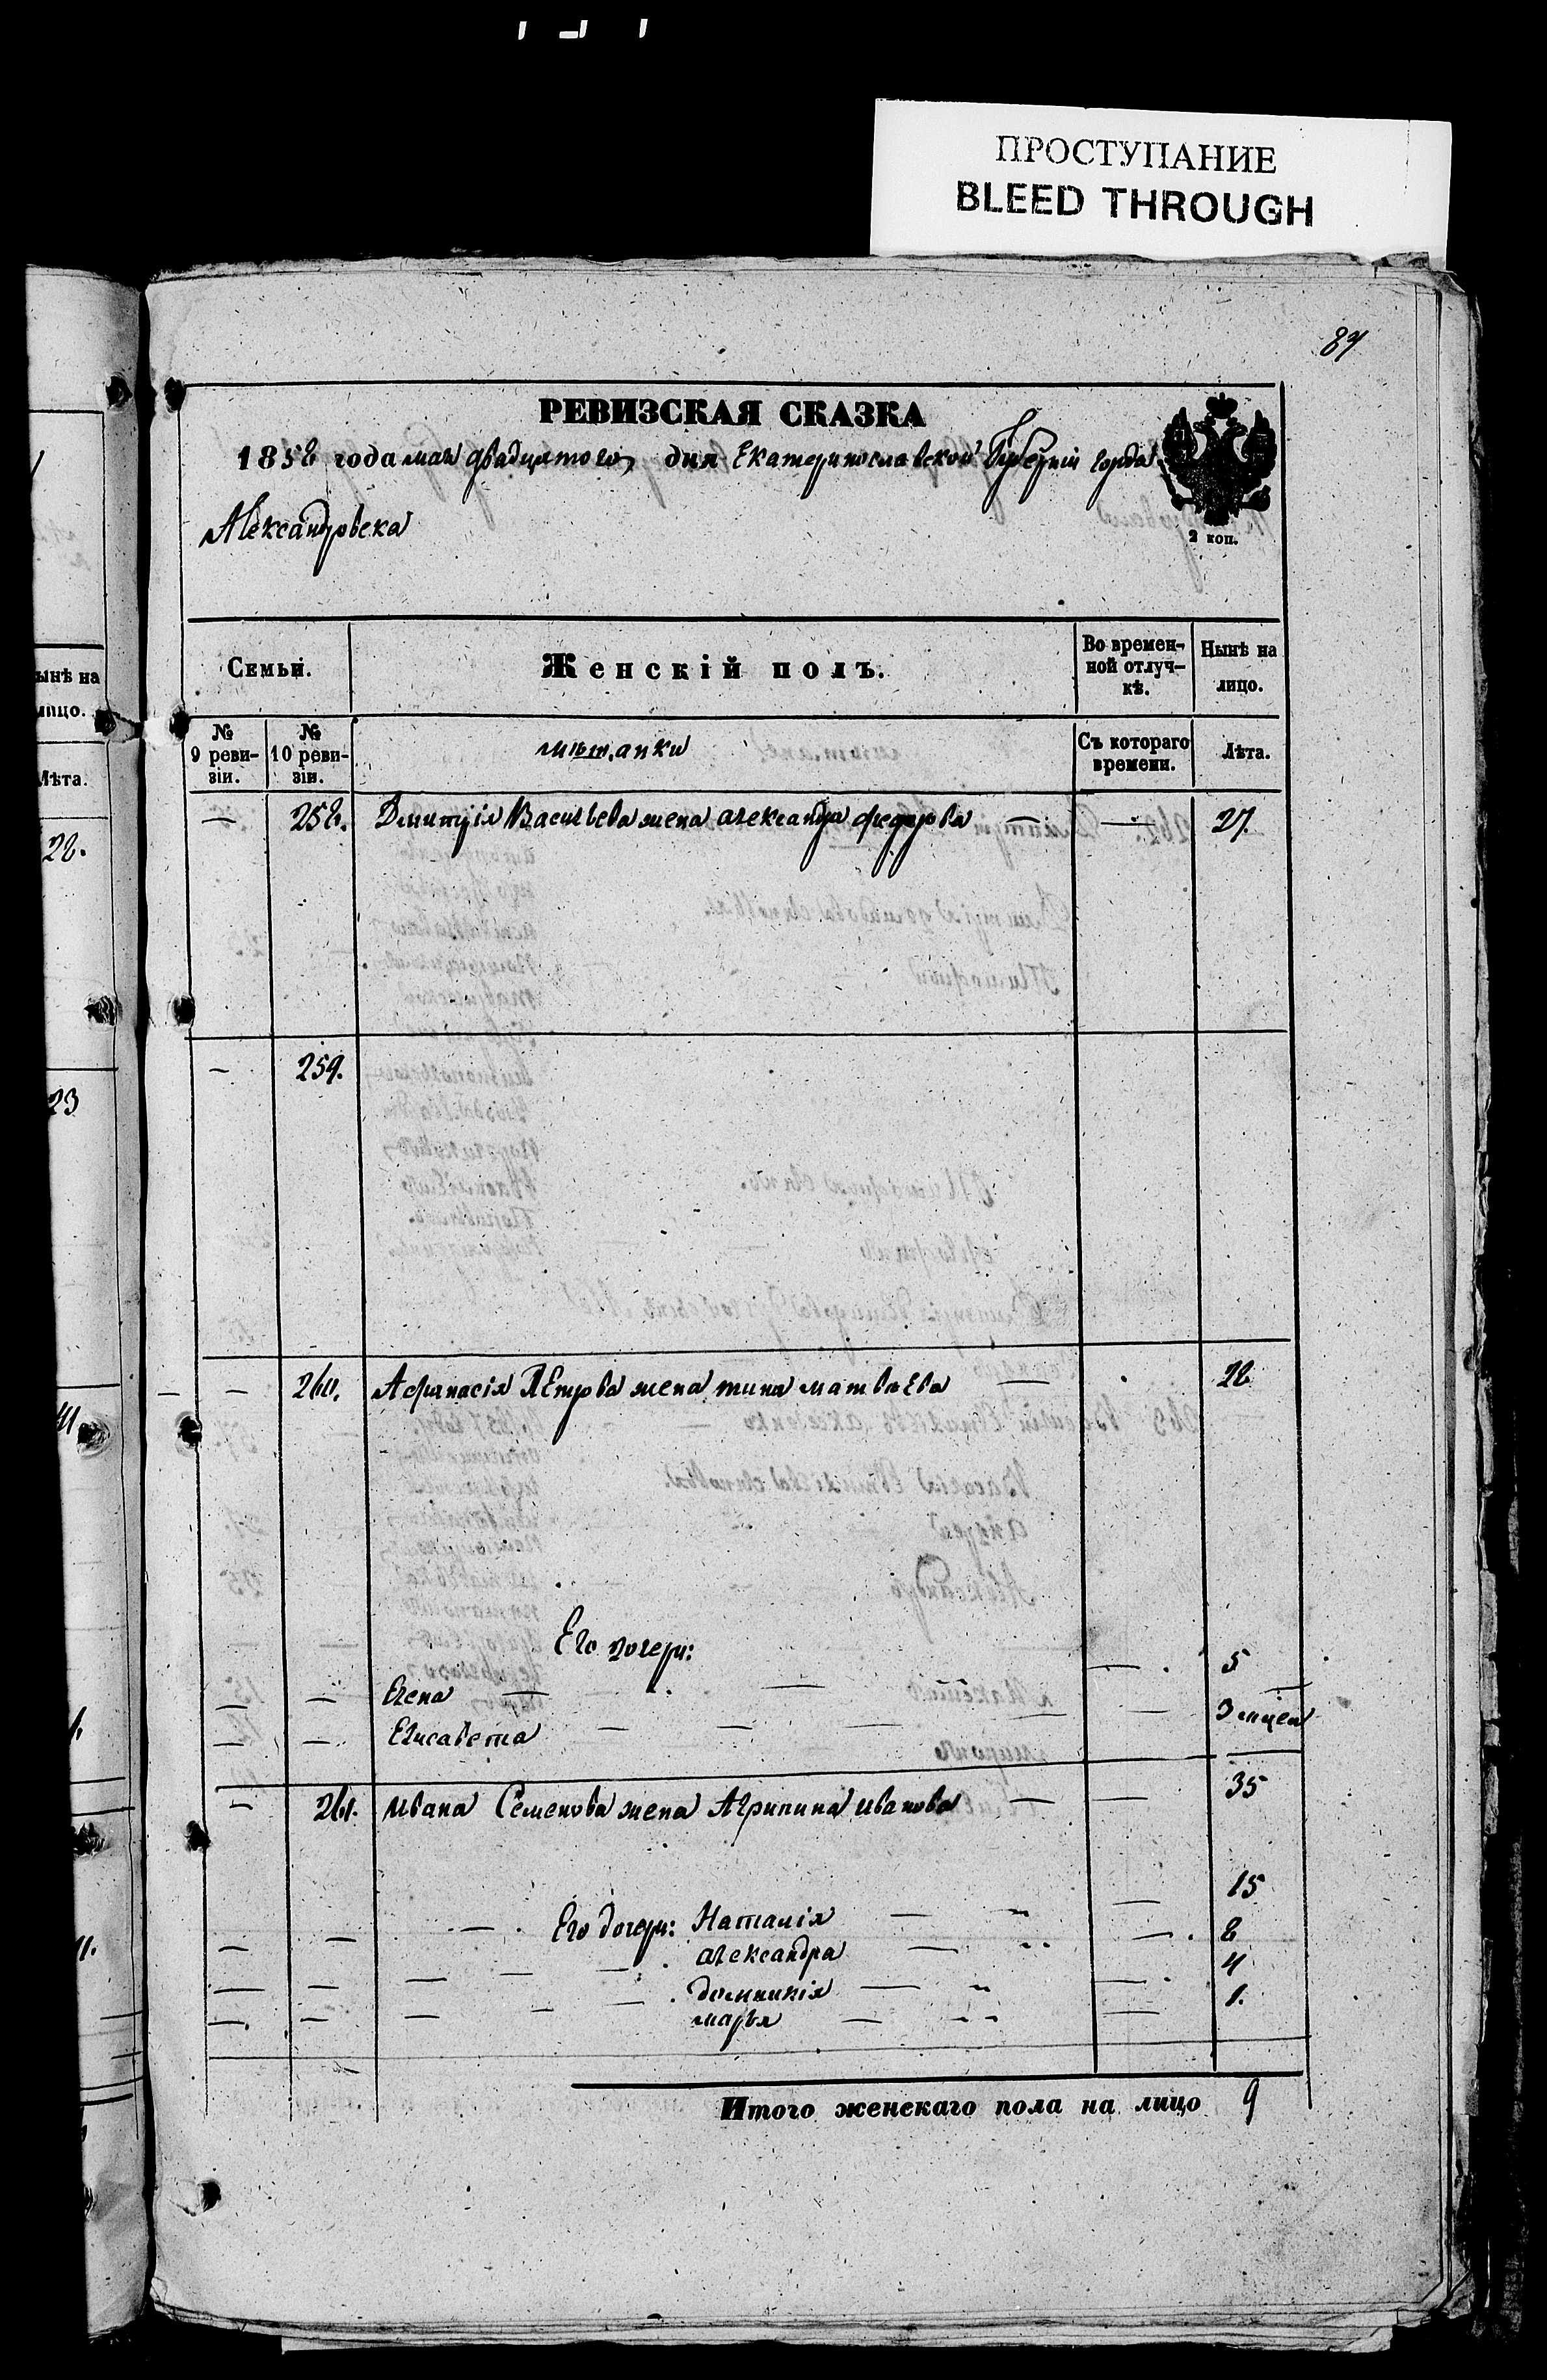 ПРОСТУПАНИЕ
BLEED THROUGH
87
РЕВИЗСКАЯ СКАЗКА
1858 года мая двадцятого дня Екатеринославской Губернiи города
Александровска
2 коп.
Семьи. Женскiй полъ. Во времен-ной отлуч-кѣ. Нынѣ на лицо.
№ 9 реви-зiи. № 10 реви-зiи. мѣщанки Съ котораго времени. Лѣта.
— 258. Дмитрiя Васильева жена александра федорова — — 27.
— 259.
— 260. Афанасiя Петрова жена матвѣева — 28
Его дочери:
Елена — — — 5
— — Елисавета — — — — — 3 мцея
— 261. Ивана Семенова жена Агрипина иванова — — 35
Его дочери: Наталiя — — 15
— — александра — — 8
— — домникiя — — 4
— — марья — — 1.
Итого женскаго пола на лицо 9
ынѣ на
лицо.
Лѣта.
28.
23